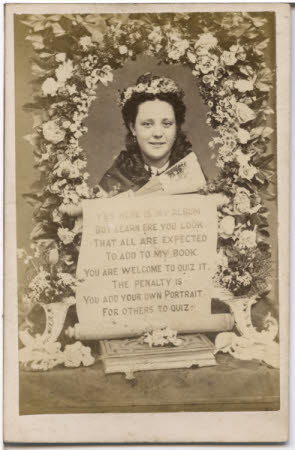 YES HERE IS MY ALBUM
BUT LEARN ERE YOU LOOK
THAT ALL ARE EXPECTED
TO ADD TO MY BOOK.
YOU ARE WELCOME TO QUIZ IT
THE PENALTY IS
YOU ADD YOUR OWN PORTRAIT
FOR OTHERS TO QUIZ.